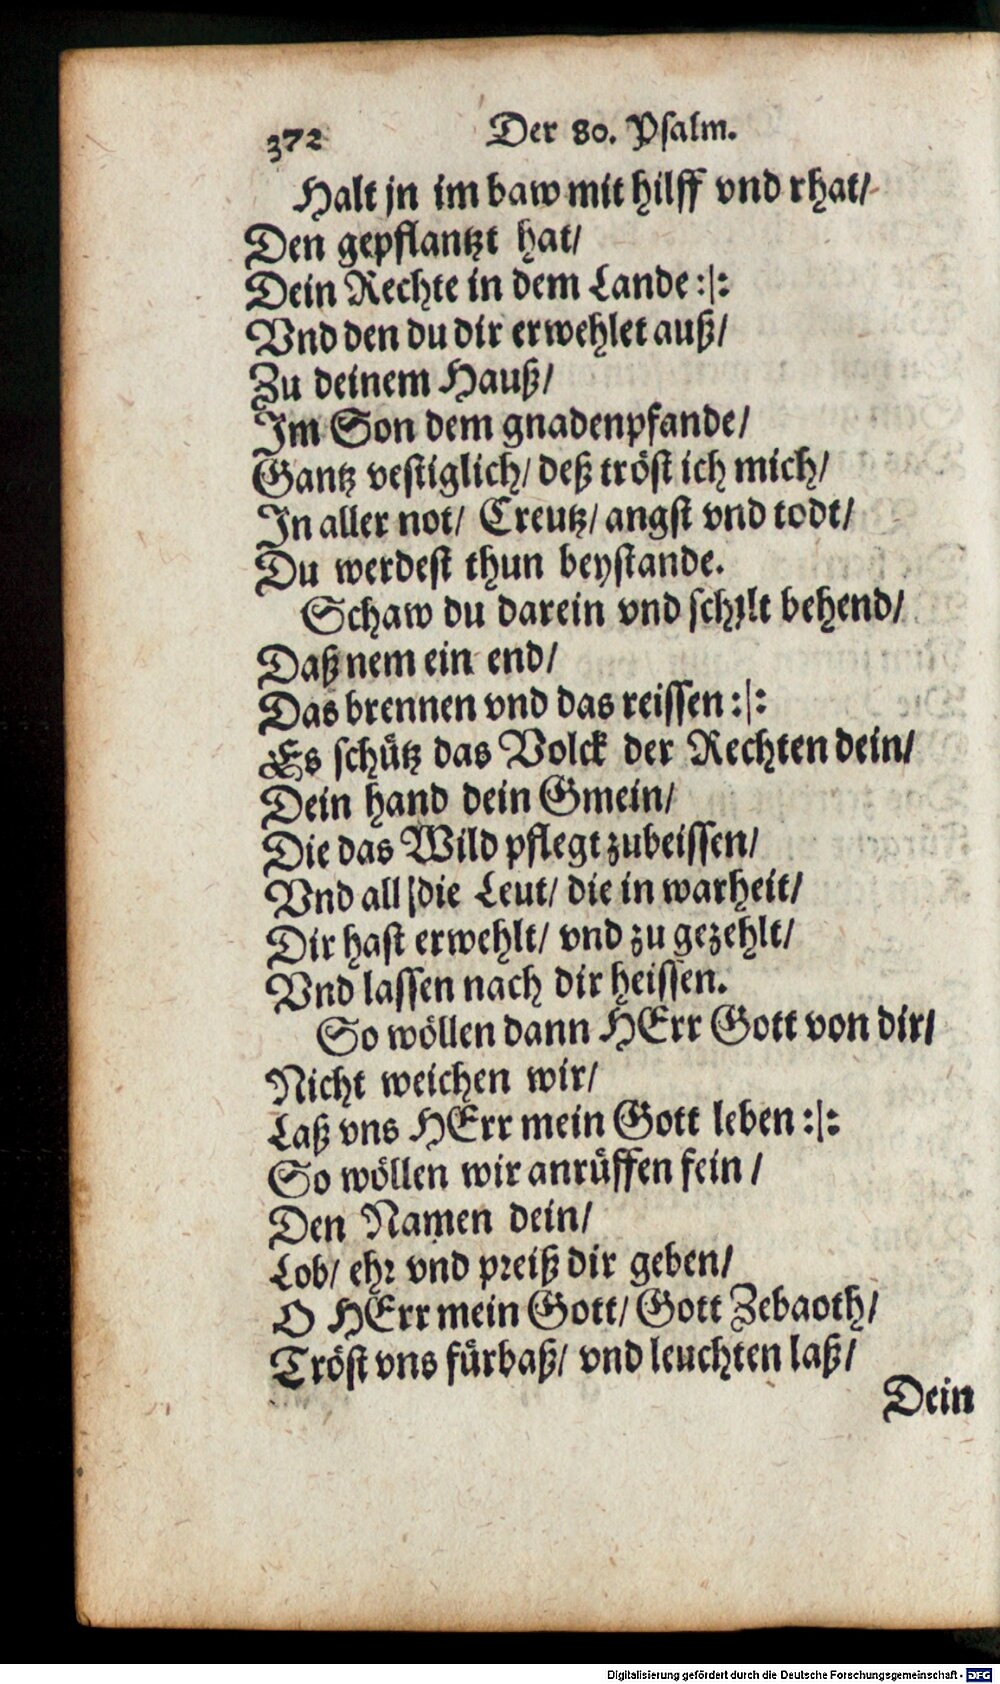 372 Der 80. Psalm.
Halt jn im baw mit hilff vnd rhat/
Den gepflantzt hat/
Dein Rechte in dem Lande :|:
Vnd den du dir erwehlet auß/
Zu deinem Hauß/
Im Son dem gnadenpfande/
Gantz vestiglich/ deß tröst ich mich/
In aller not/ Creutz/ angst vnd todt/
Du werdest thun beystande.
Schaw du darein vnd schilt behend/
Daß nem ein end/
Das brennen vnd das reissen :|:
Es schütz das Volck der Rechten dein/
Dein hand dein Gmein/
Die das Wild pflegt zubeissen/
Vnd all die Leut/ die in warheit/
Dir hast erwehlt/ vnd zu gezehlt/
Vnd lassen nach dir heissen.
So wöllen dann HErr Gott von dir/
Nicht weichen wir/
Laß vns HErr mein Gott leben :|:
So wöllen wir anrüffen fein/
Den Namen dein/
Lob/ ehr vnd preiß dir geben/
O HErr mein Gott/ Gott Zebaoth/
Tröst vns fürbaß/ vnd leuchten laß/
Dein
Digitalisierung gefördert durch die Deutsche Forschungsgemeinschaft - DFG